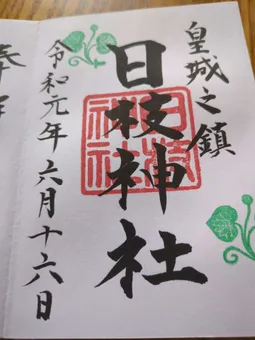 皇城之鎮
日枝神社
日枝神社
令和元年六月十六日
奉拝